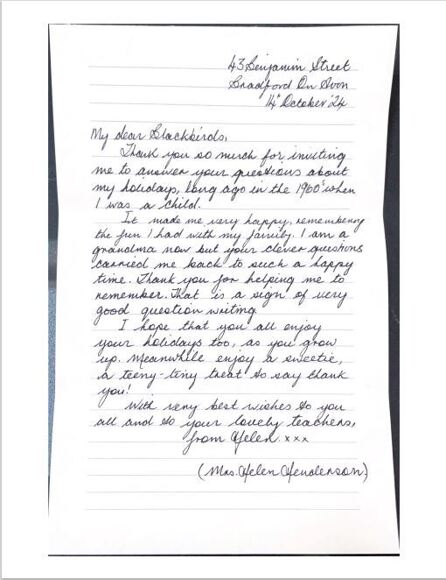 43 Benjamin Street
Bradford On Avon
14th October '24
My dear Blackbirds,
Thank you so much for inviting
me to answer your questions about
my holidays, long ago in the 1960s when
I was a child.
It made me very happy, remembering
the fun I had with my family. I am a
grandma now but your clever questions
carried me back to such a happy
time. Thank you for helping me to
remember. That is a sign of very
good question writing.
I hope that you all enjoy
your holidays too, as you grow
up. Meanwhile enjoy a sweetie,
a teeny-tiny treat to say thank
you!
With very best wishes to you
all and to your lovely teachers,
from Helen xxx
(Mrs. Helen Henderson)